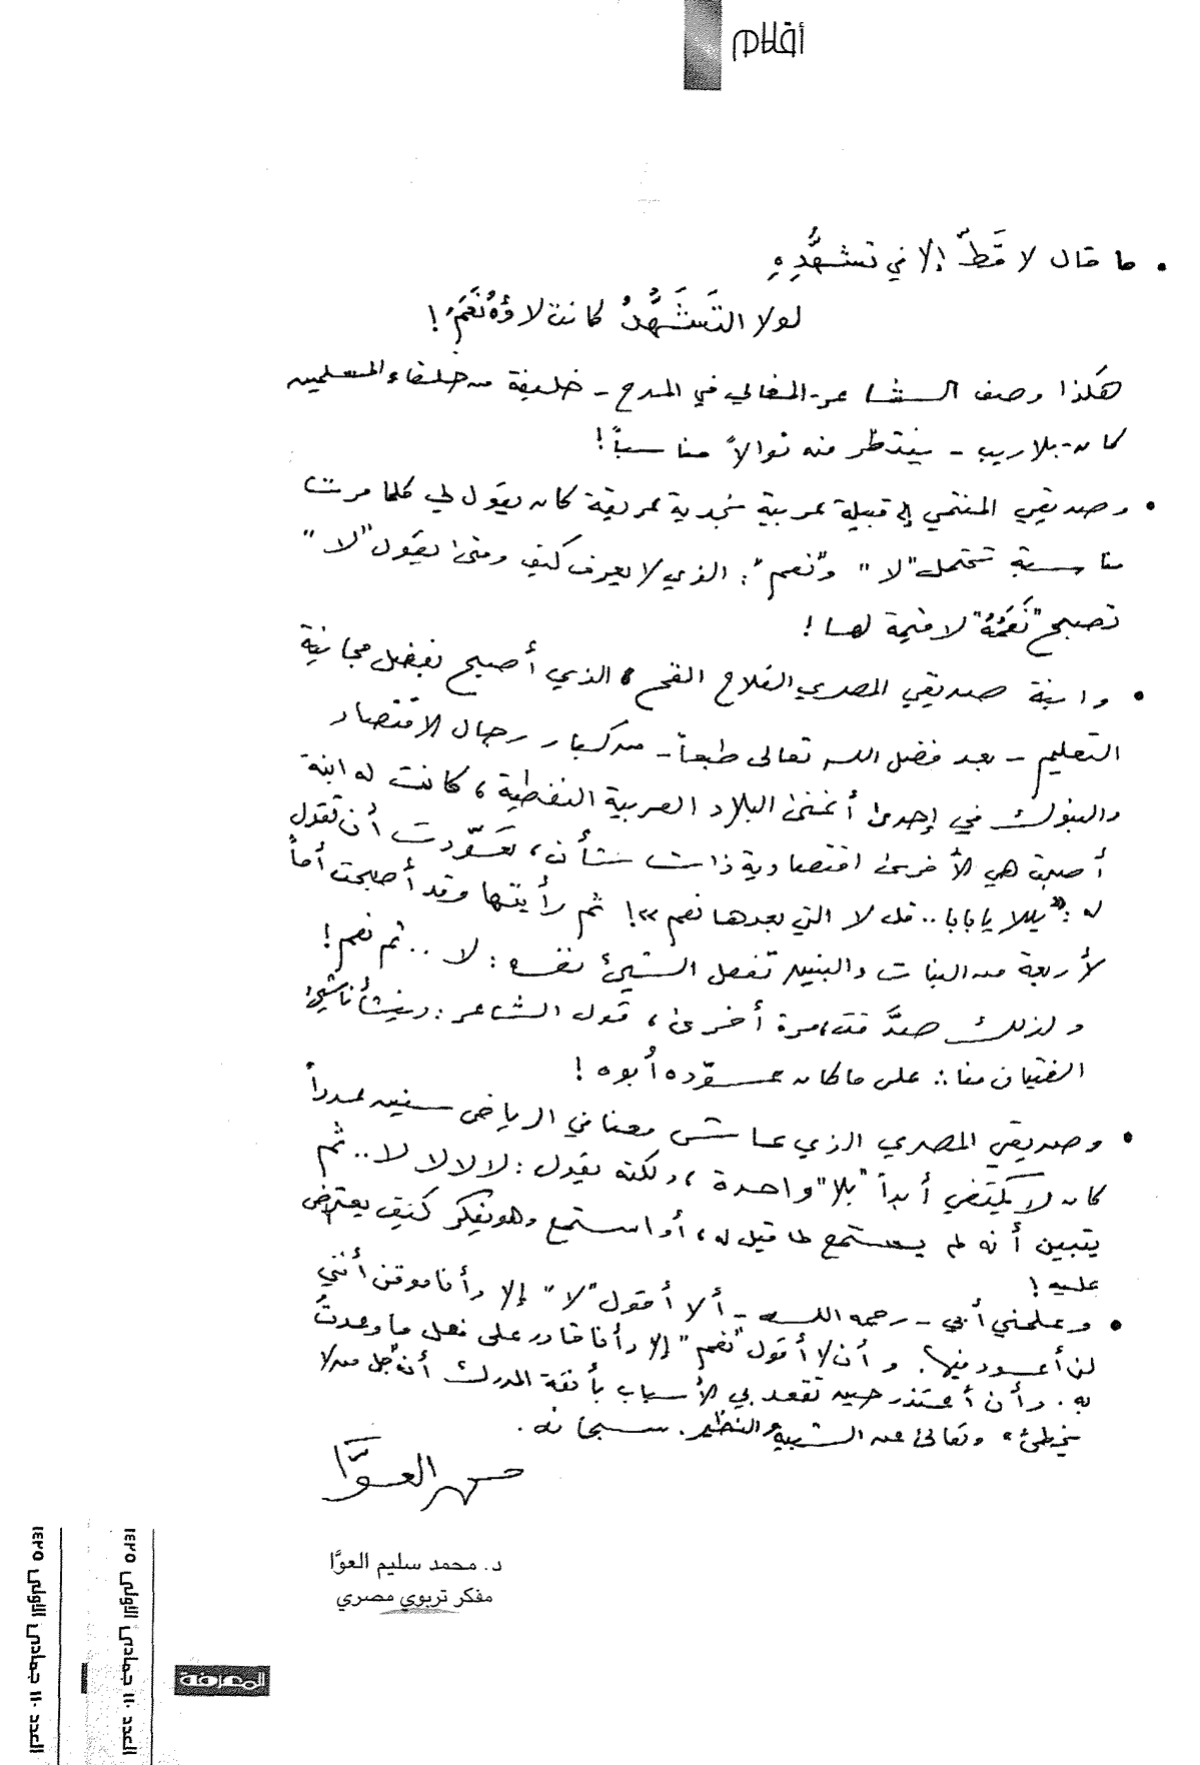 أقلام
• ما قال لا قَطُّ إلا في تشهُّدِهِ
لولا التَشَهُّدُ كانت لاؤهُ نَعَمُ!
هكذا وصف الشاعر - المغالي في المدح - خليفة من خلفاء المسلمين
كان - بلا ريب - ينتظر منه نوالاً مناسباً!
• وصديقي المنتمي إلى قبيلة عربية نجدية عريقة كان يقول لي كلما مرت
مناسبة تحتمل "لا" و"نعم": الذي لا يعرف كيف ومتى يقول "لا"
تصبح "نَعَمُهُ" لا قيمة لها!
• وابنة صديقي المصري الفلاح القح، الذي أصبح بفضل مجانية
التعليم - بعد فضل الله تعالى طبعاً - من كبار رجال الاقتصاد
والبنوك في إحدى أغنى البلاد العربية النفطية، كانت له ابنة
أصبحت هي الأخرى اقتصادية ذات شأن، تعوّدت أن تقول
له: «يللا يا بابا.. قل لا التي بعدها نعم»! ثم رأيتها وقد أصبحت أماً
لأربعة من البنات والبنين تفعل الشيئ نفسه: لا .. ثم نعم!
ولذلك صدَّقت، مرة أخرى، قول الشاعر: وينشأ ناشئ
الفتيان منا :: على ما كان عوّده أبوه!
• وصديقي المصري الذي عاش معنا في الرياض سنين عدداً
كان لا يكتفي أبداً "بلا" واحدة، ولكنه يقول: لا لا لا لا .. ثم
يتبين أنه لم يستمع لما قيل له، أو استمع وهو يفكر كيف يعترض
عليه!
• وعلمني أبي - رحمه الله - ألا أقول "لا" إلا وأنا موقن أنني
لن أعود فيها. وأن لا أقول "نعم" إلا وأنا قادر على فعل ما وعدتُ
به. وأن أعتذر حين تقعد بي الأسباب بأنفة المدرك أن جل من لا
يخطئ، وتعالى عن الشبيه والنظير. سبحانه.
د. محمد سليم العوَّا
مفكر تربوي مصري
المعرفة
العدد ١١٠ جمادى الأولى ١٤٢٥
العدد ١١٠ جمادى الأولى ١٤٢٥